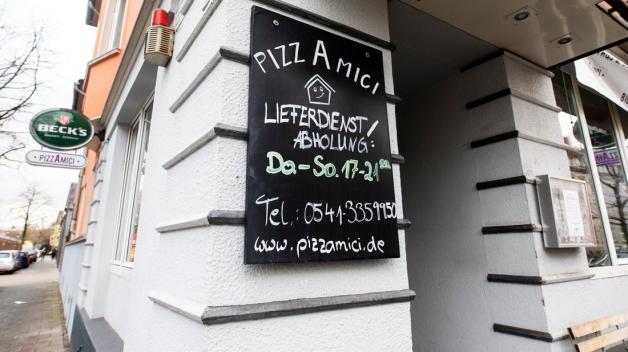 PIZZAMICI
LIEFERDIENST/
ABHOLUNG:
Do-So. 17-21
Tel.: 0541-3359950
www.pizzamici.de
BECK'S
PIZZAMICI